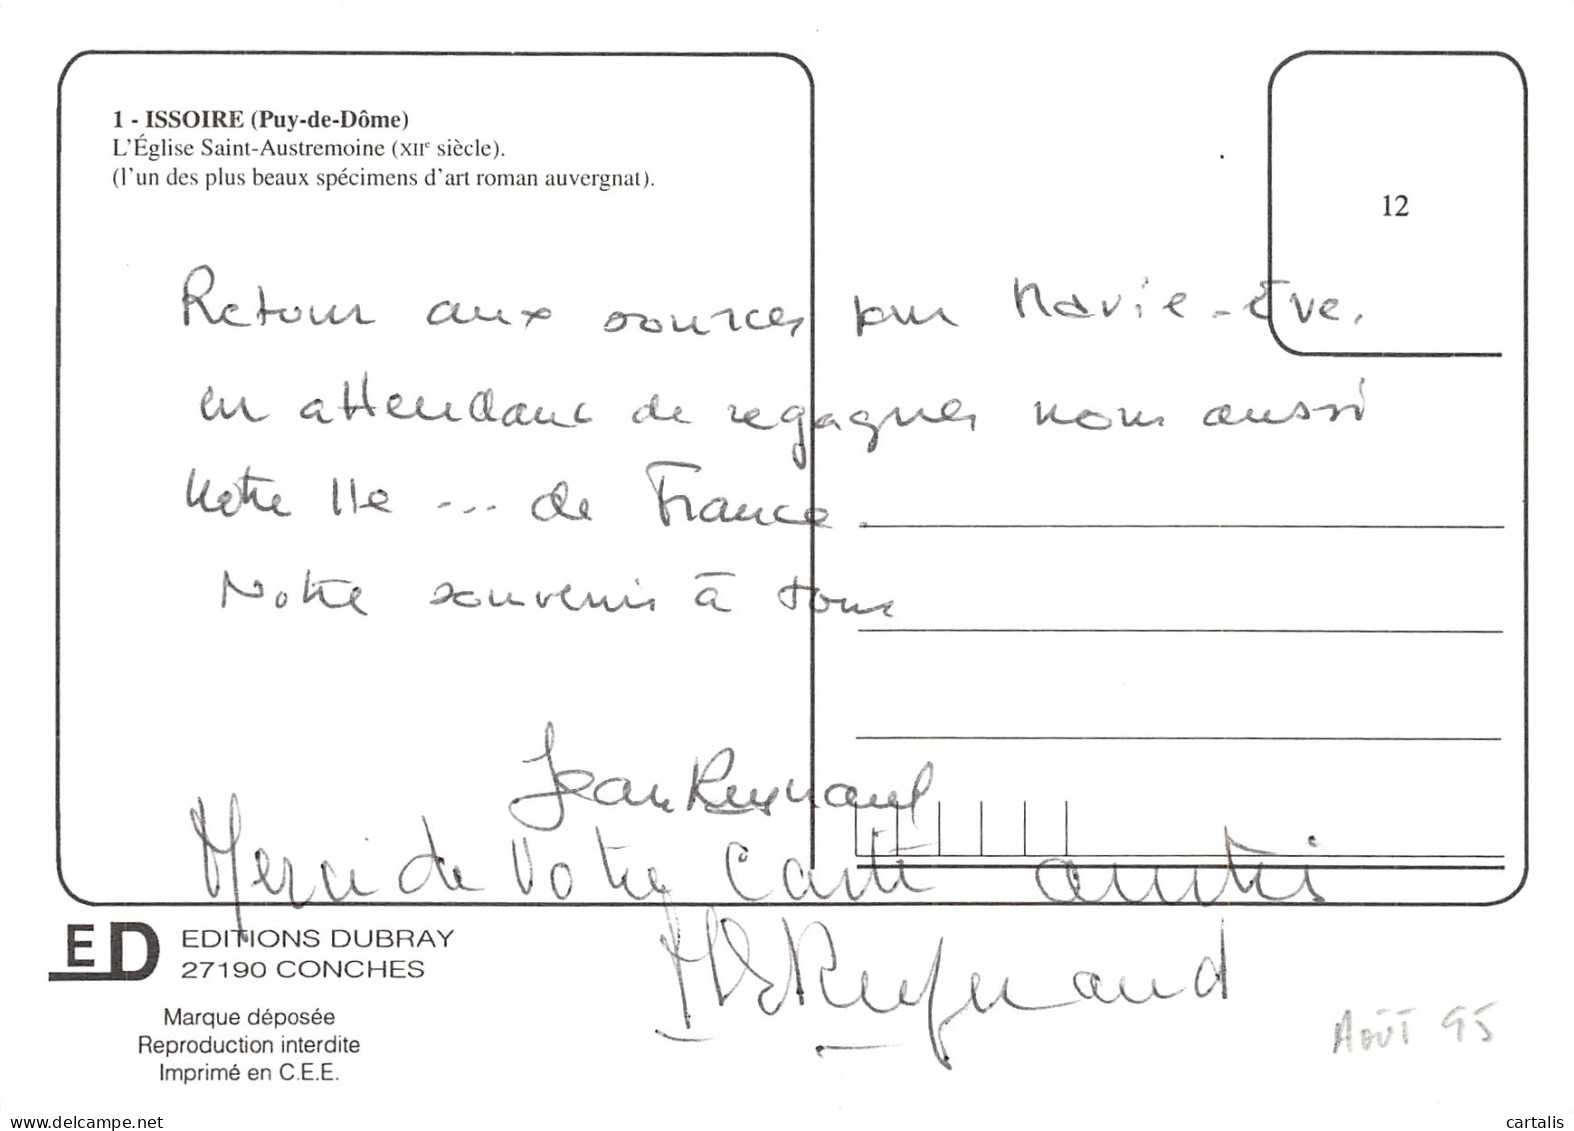 1 - ISSOIRE (Puy-de-Dôme)
L'Église Saint-Austremoine (XIIe siècle).
(l'un des plus beaux spécimens d'art roman auvergnat).
12
Retour aux sources pour Marie-Eve,
en attendant de regagner nous aussi
Notre Ile ... de France.
Notre souvenir à tous
Jean Reynaud
Merci de votre carte amitiés
ME Reynaud
ED
EDITIONS DUBRAY
27190 CONCHES
Marque déposée
Reproduction interdite
Imprimé en C.E.E.
AOÛT 95
delcampe.net
cartalis